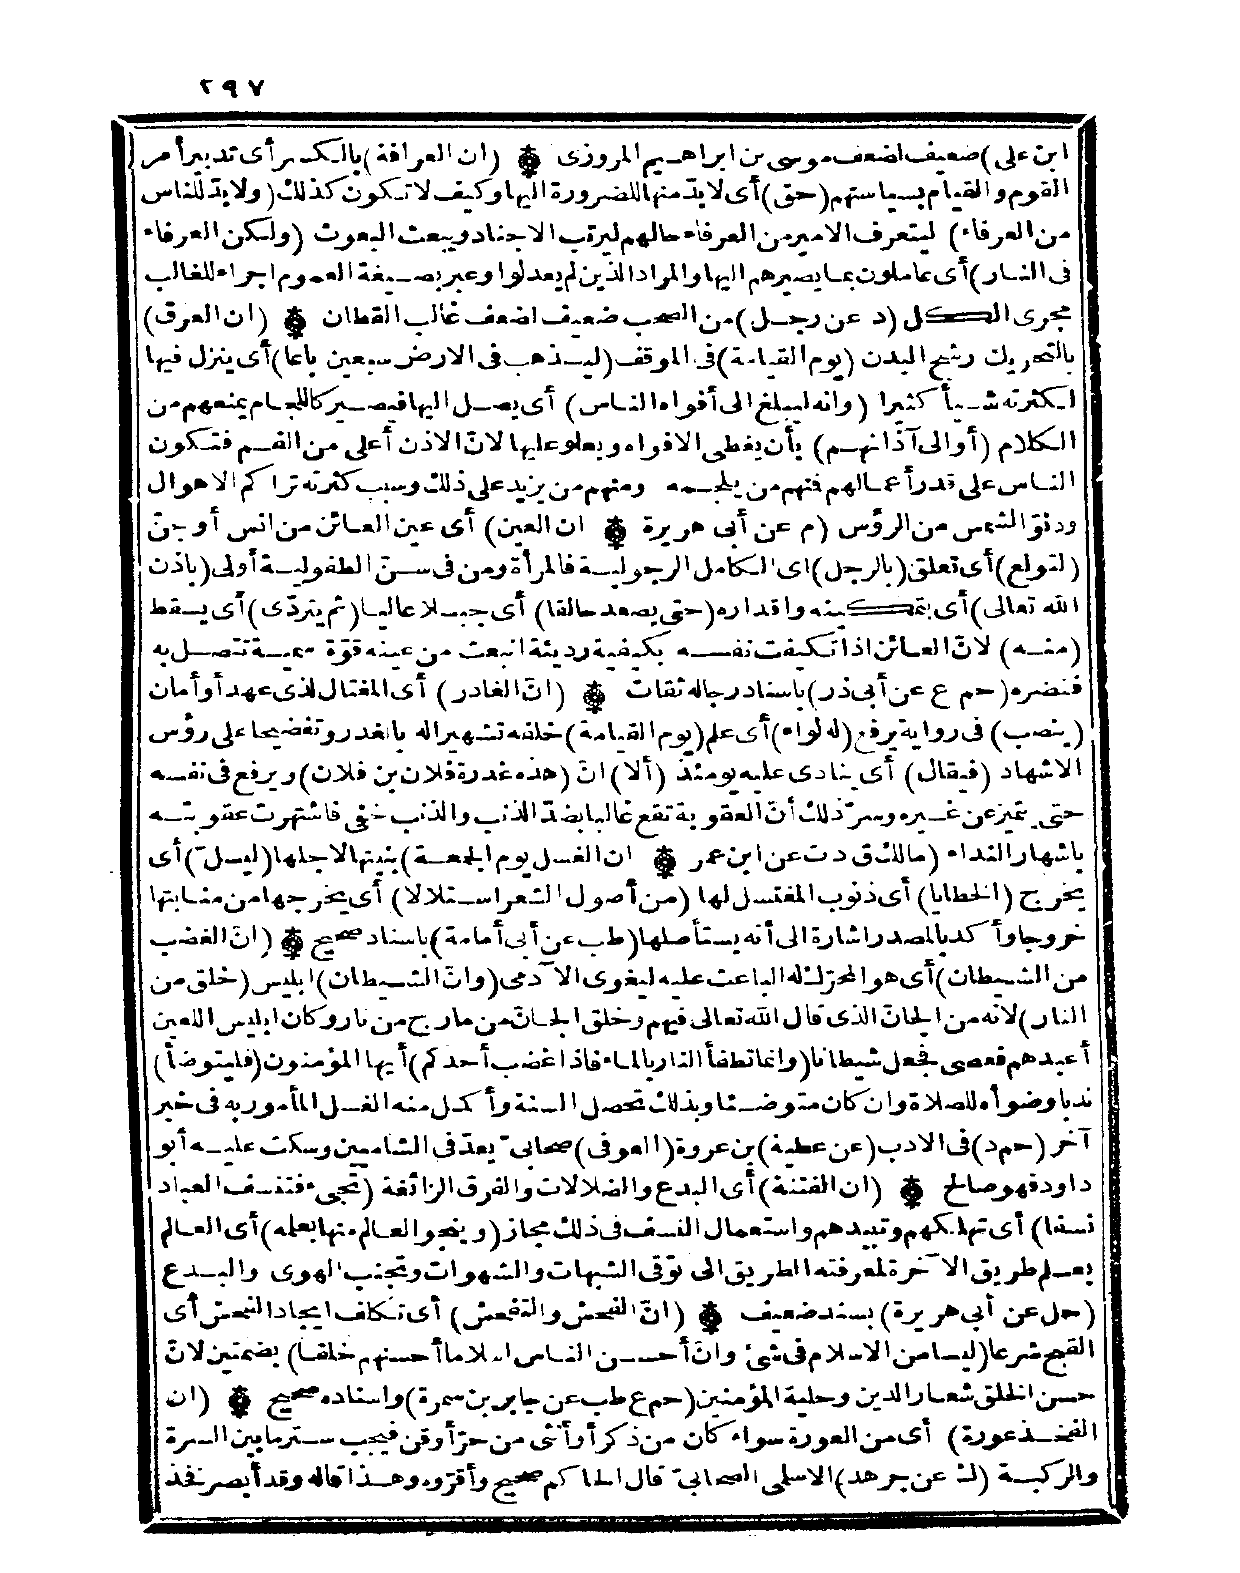 ٢٩٧
ابن على) ضعيف لضعف موسى بن ابراهيم المروزى ۞ (ان العرافة) بالكسر أى تدبير أمر
القوم والقيام بسياستهم (حق) أى لابد منها للضرورة اليها وكيف لا تكون كذلك (ولابد للناس
من العرفاء) ليتعرف الامير من العرفاء حالهم ليرتب الاجناد ويبعث البعوث (ولكن العرفاء
فى النار) أى عاملون بما يصيرهم اليها والمراد الذين لم يعدلوا وعبر بصيغة العموم اجراء للغالب
مجرى الكل (د عن رجل) من الصحب ضعيف لضعف غالب القطان ۞ (ان العرق)
بالتحريك رشح البدن (يوم القيامة) فى الموقف (ليذهب فى الارض سبعين باعا) أى ينزل فيها
لكثرته شيأ كثيرا (وانه ليبلغ الى أفواه الناس) أى يصل اليها فيصير كاللجام يمنعهم من
الكلام (أو الى آذانهم) بأن يغطى الافواه ويعلو عليها لانّ الاذن أعلى من الفم فتكون
الناس على قدر أعمالهم فمنهم من يلجمه ومنهم من يزيد على ذلك وسبب كثرته تراكم الاهوال
ودنوّ الشمس من الرؤس (م عن أبى هريرة ۞ ان العين) أى عين العائن من انس أو جنّ
(لتولع) أى تعلق (بالرجل) اى الكامل الرجولية فالمرأة ومن فى سنّ الطفولية أولى (باذن
الله تعالى) أى بتمكينه واقداره (حتى يصعد حالقا) أى جبلا عاليا (ثم يتردّى) أى يسقط
(منه) لانّ العائن اذا تكيفت نفسه بكيفية رديئة انبعث من عينه قوّة سمية تتصل به
فتضره (حم ع عن أبى ذر) باسناد رجاله ثقات ۞ (انّ الغادر) أى المغتال لذى عهد أو أمان
(ينصب) فى رواية يرفع (له لواء) أى علم (يوم القيامة) خلفه تشهيرا له بالغدر وتفضيحا على رؤس
الاشهاد (فيقال) أى ينادى عليه يومئذ (ألا) انّ (هذه غدرة فلان بن فلان) ويرفع فى نفسه
حتى يتميز عن غيره وسرّ ذلك أنّ العقوبة تقع غالبا بضدّ الذنب والذنب خفى فاشتهرت عقوبته
باشهار النداء (مالك ق د ت عن ابن عمر ۞ ان الغسل يوم الجمعة) بنيتها لاجلها (ليسلّ) أى
يخرج (الخطايا) أى ذنوب المغتسل لها (من أصول الشعر استلالا) أى يخرجها من منابتها
خروجا وأكد بالمصدر اشارة الى أنه يستأصلها (طب عن أبى أمامة) باسناد صحيح ۞ (انّ الغضب
من الشيطان) أى هو المحرّك له الباعث عليه ليغوى الآدمى (وانّ الشيطان) ابليس (خلق من
النار) لانه من الجانّ الذى قال الله تعالى فيهم وخلق الجانّ من مارج من نار وكان ابليس اللعين
أعبدهم فعصى فجعل شيطانا (وانما تطفأ النار بالماء فاذا غضب أحدكم) أيها المؤمنون (فليتوضأ)
ندبا وضوأه للصلاة وان كان متوضئا وبذلك تحصل السنة وأكمل منه الغسل المأمور به فى خبر
آخر (حم د) فى الادب (عن عطية) بن عروة (العوفى) صحابىّ يعدّ فى الشاميين وسكت عليه أبو
داود فهو صالح ۞ (ان الفتنة) أى البدع والضلالات والفرق الزائغة (تجىء فتنسف العباد
نسفا) أى تهلكهم وتبيدهم واستعمال النسف فى ذلك مجاز (وينجو العالم منها بعلمه) أى العالم
بعلم طريق الآخرة لمعرفته الطريق الى توقى الشبهات والشهوات وتجنب الهوى والبدع
(حل عن أبى هريرة) بسند ضعيف ۞ (انّ الفحش والتفحش) أى تكلف ايجاد الفحش أى
القبح شرعا (ليسا من الاسلام فى شئ وانّ أحسن الناس اسلاما أحسنهم خلقا) بضمتين لانّ
حسن الخلق شعار الدين وحلية المؤمنين (حم ع طب عن جابر بن سمرة) واسناده صحيح ۞ (ان
الفخذ عورة) أى من العورة سواء كان من ذكر أو أنثى من حرّ أو قنّ فيجب ستر ما بين السرة
والركبة (ك عن جرهد) الاسلمى الصحابىّ قال الحاكم صحيح وأقرّوه وهذا قاله وقد أبصر فخذ